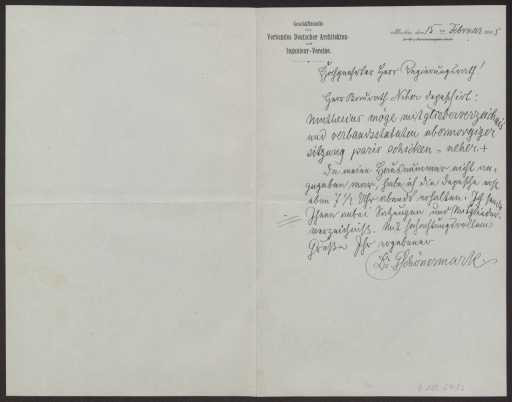 Geschäftsstelle
des
Verbandes Deutscher Architekten-
und
Ingenieur-Vereine.
Berlin, den 15ten Februar 1905
Hochgeehrter Herr Regierungsrath!
Herr Baurath Neher depeschirt:
matthaeus möge mitgliederverzeichnis
und verbandsstatuten übermorgiger
sitzung paris schicken = neher +
Da meine Hausnummer nicht an-
gegeben war, habe ich die Depesche erst
eben 7 1/2 Uhr abends erhalten. Ich sende
Ihnen anbei Satzungen und Mitglieder-
verzeichniß. Mit hochachtungsvollem
Gruße Ihr ergebener
Dr. Schönermark